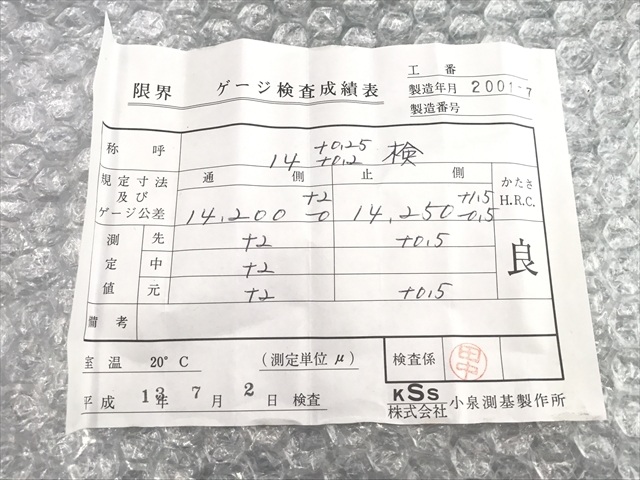 工番
限界 ゲージ検査成績表
製造年月 2001-7
製造番号
称呼 14 +0.25 +0.2 検
規定寸法及びゲージ公差
通側 止側
かたさ H.R.C.
14.200 +2 -0 14.250 +1.5 -0.5
測定値
先 +2 +0.5
中 +2
元 +2 +0.5
良
備考
室温 20°C (測定単位μ)
検査係 田中
平成 13年 7月 2日 検査
KSS
株式会社 小泉測基製作所